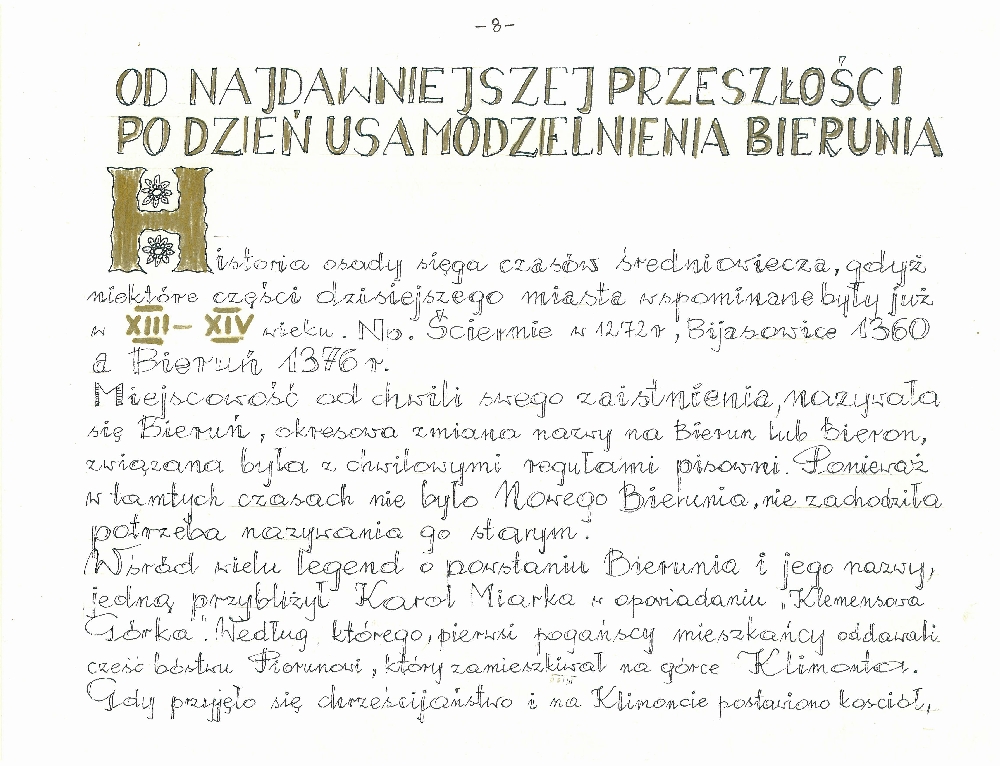 -8-
OD NAJDAWNIEJSZEJ PRZESZŁOŚCI
PO DZIEŃ USAMODZIELNIENIA BIERUNIA
Historia osady sięga czasów średniowiecza, gdyż
niektóre części dzisiejszego miasta wspominane były już
w XIII – XIV wieku. Np. Ściernie w 1272 r, Bijasowice 1360
a Bieruń 1376 r.
Miejscowość od chwili swego zaistnienia, nazywała
się Bieruń, okresowa zmiana nazwy na Bierun lub Bieron,
związana była z chwilowymi regułami pisowni. Ponieważ
w tamtych czasach nie było Nowego Bierunia, nie zachodziła
potrzeba nazywania go starym.
Wśród wielu legend o powstaniu Bierunia i jego nazwy,
jedną przybliżył Karol Miarka w opowiadaniu „Klemensowa
Górka". Według którego, pierwsi pogańscy mieszkańcy oddawali
cześć bóstwu Piorunowi, który zamieszkiwał na górce Klimonta.
Gdy przyjęto się chrześcijaństwo i na Klimoncie postawiono kosciół,